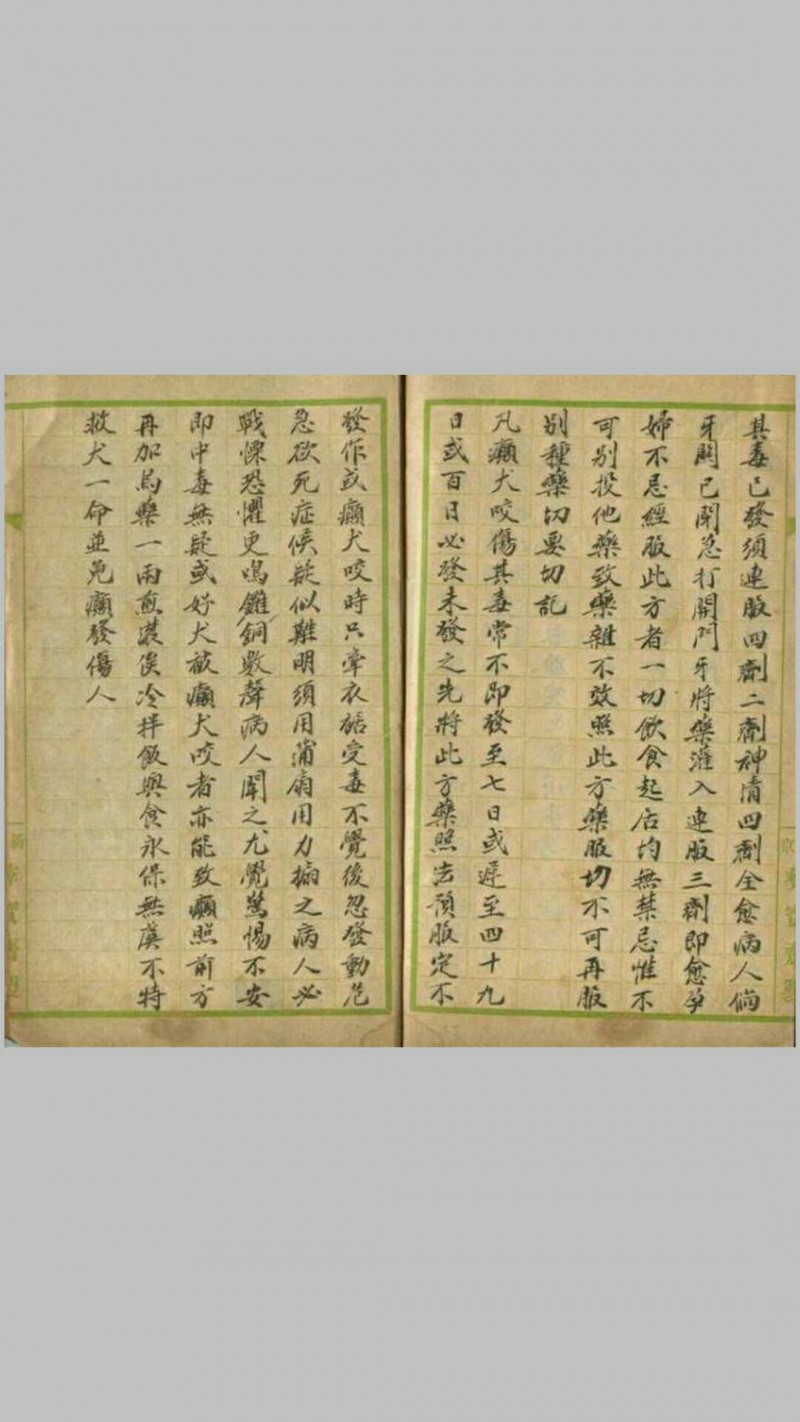 其毒已發須連服四劑二劑神清四劑全愈病人倘
牙関已闭急打開門牙將藥灌入連服三劑即愈孕
婦不忌經服此方者一切飲食起居均無禁忌惟不
可别投他藥致藥雜不效照此方藥服切不可再服
别種藥切要切記
凡癲犬咬傷其毒常不即發至七日或遲至四十九
日或百日必發未發之先將此方藥照法預服定不
發作或癲犬咬時只牽衣裾受毒不覺後忽發動危
急欲死症候疑似難明須用蒲扇用力搧之病人必
戰慄恐懼更鳴鑼銅數聲病人聞之尤覺驚惕不安
即中毒無疑或好犬被癲犬咬者亦能致癲照前方
再加烏藥一兩煎濃俟冷拌飯與食永保無虞不特
救犬一命並免癲發傷人